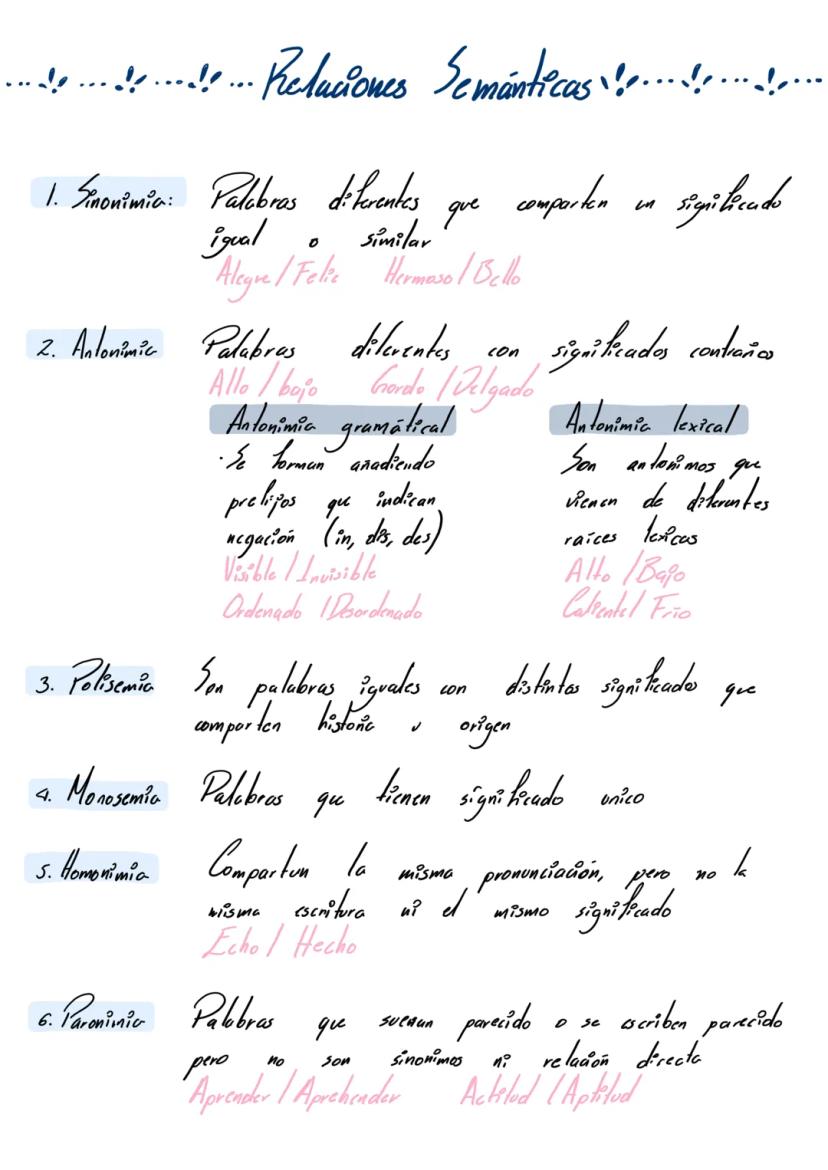 Relaciones Semánticas
1. Sinonimia:
Palabras diferentes que comparten un significado
igual o similar
Alegre / Feliz Hermoso / Bello
2. Antonimia
Palabras diferentes con significados contrarios
Alto / bajo Gordo / Delgado
Antonimia gramátical
· Se forman añadiendo
prefijos que indican
negación (in, dis, des)
Visible / Invisible
Ordenado / Desordenado
Antonimia lexical
Son antonimos que
vienen de diferentes
raíces lexicas
Alto / Bajo
Caliente / Frio
3. Polisemia
Son palabras iguales con distintos significados que
comparten historia u origen
4. Monosemia
Palabras que tienen significado unico
5. Homonimia
Comparten la misma pronunciación, pero no la
misma escritura ni el mismo significado
Echo / Hecho
6. Paronimia
Palabras que suenan parecido o se escriben parecido
pero no son sinonimos ni relación directa
Aprender / Aprehender Actitud / Aptitud